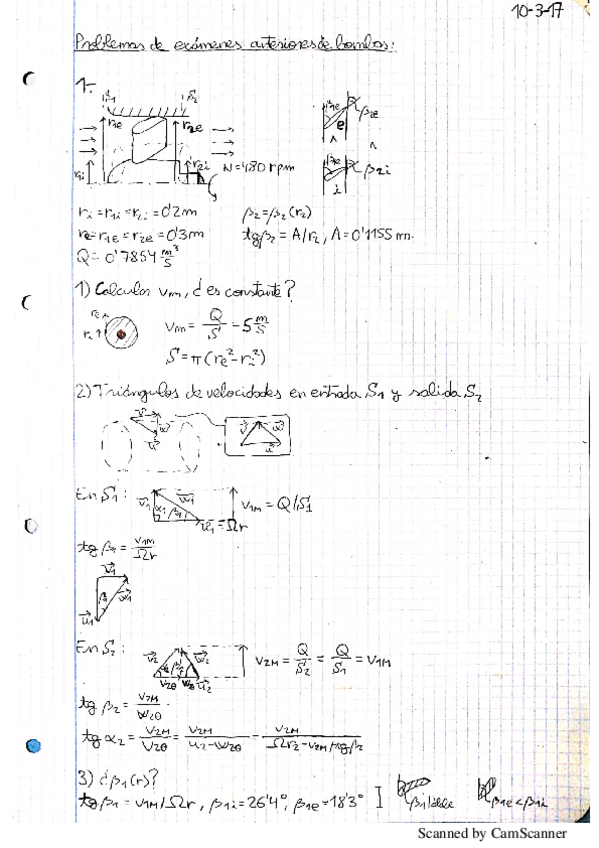 10-3-17
Problemas de exámenes anteriores de bombas:
1-
S1 S2
r1e r2e
r1i r2i N=480 rpm
β2e
e
β2i
i
ri = r1i = r2i = 0'2m β2=β2(r2)
re = r1e = r2e = 0'3m tgβ2 = A/r2, A = 0'1155 m.
Q = 0'7854 m³/s
1) Calcular vm, ¿es constante?
vm = Q/S = 5 m/s
S = π(re²-ri²)
2) Triángulos de velocidades en entrada S1 y salida S2
En S1: v1 w1 α1 β1 v1M = Q/S1
u1 = Ωr
tg β1 = v1M/Ωr
v1
β1 w1
u1
En S2: v2 w2 v2M = Q/S2 = Q/S1 = v1M
v2θ w2θ u2
tg β2 = v2M/w2θ
tg α2 = v2M/v2θ = v2M/(u2-w2θ) = v2M/(Ωr2-v2M/tgβ2)
3) ¿β1(r)?
tg β1 = v1M/Ωr, β1i=26'4°, β1e=18'3° β1e<β1i
Scanned by CamScanner